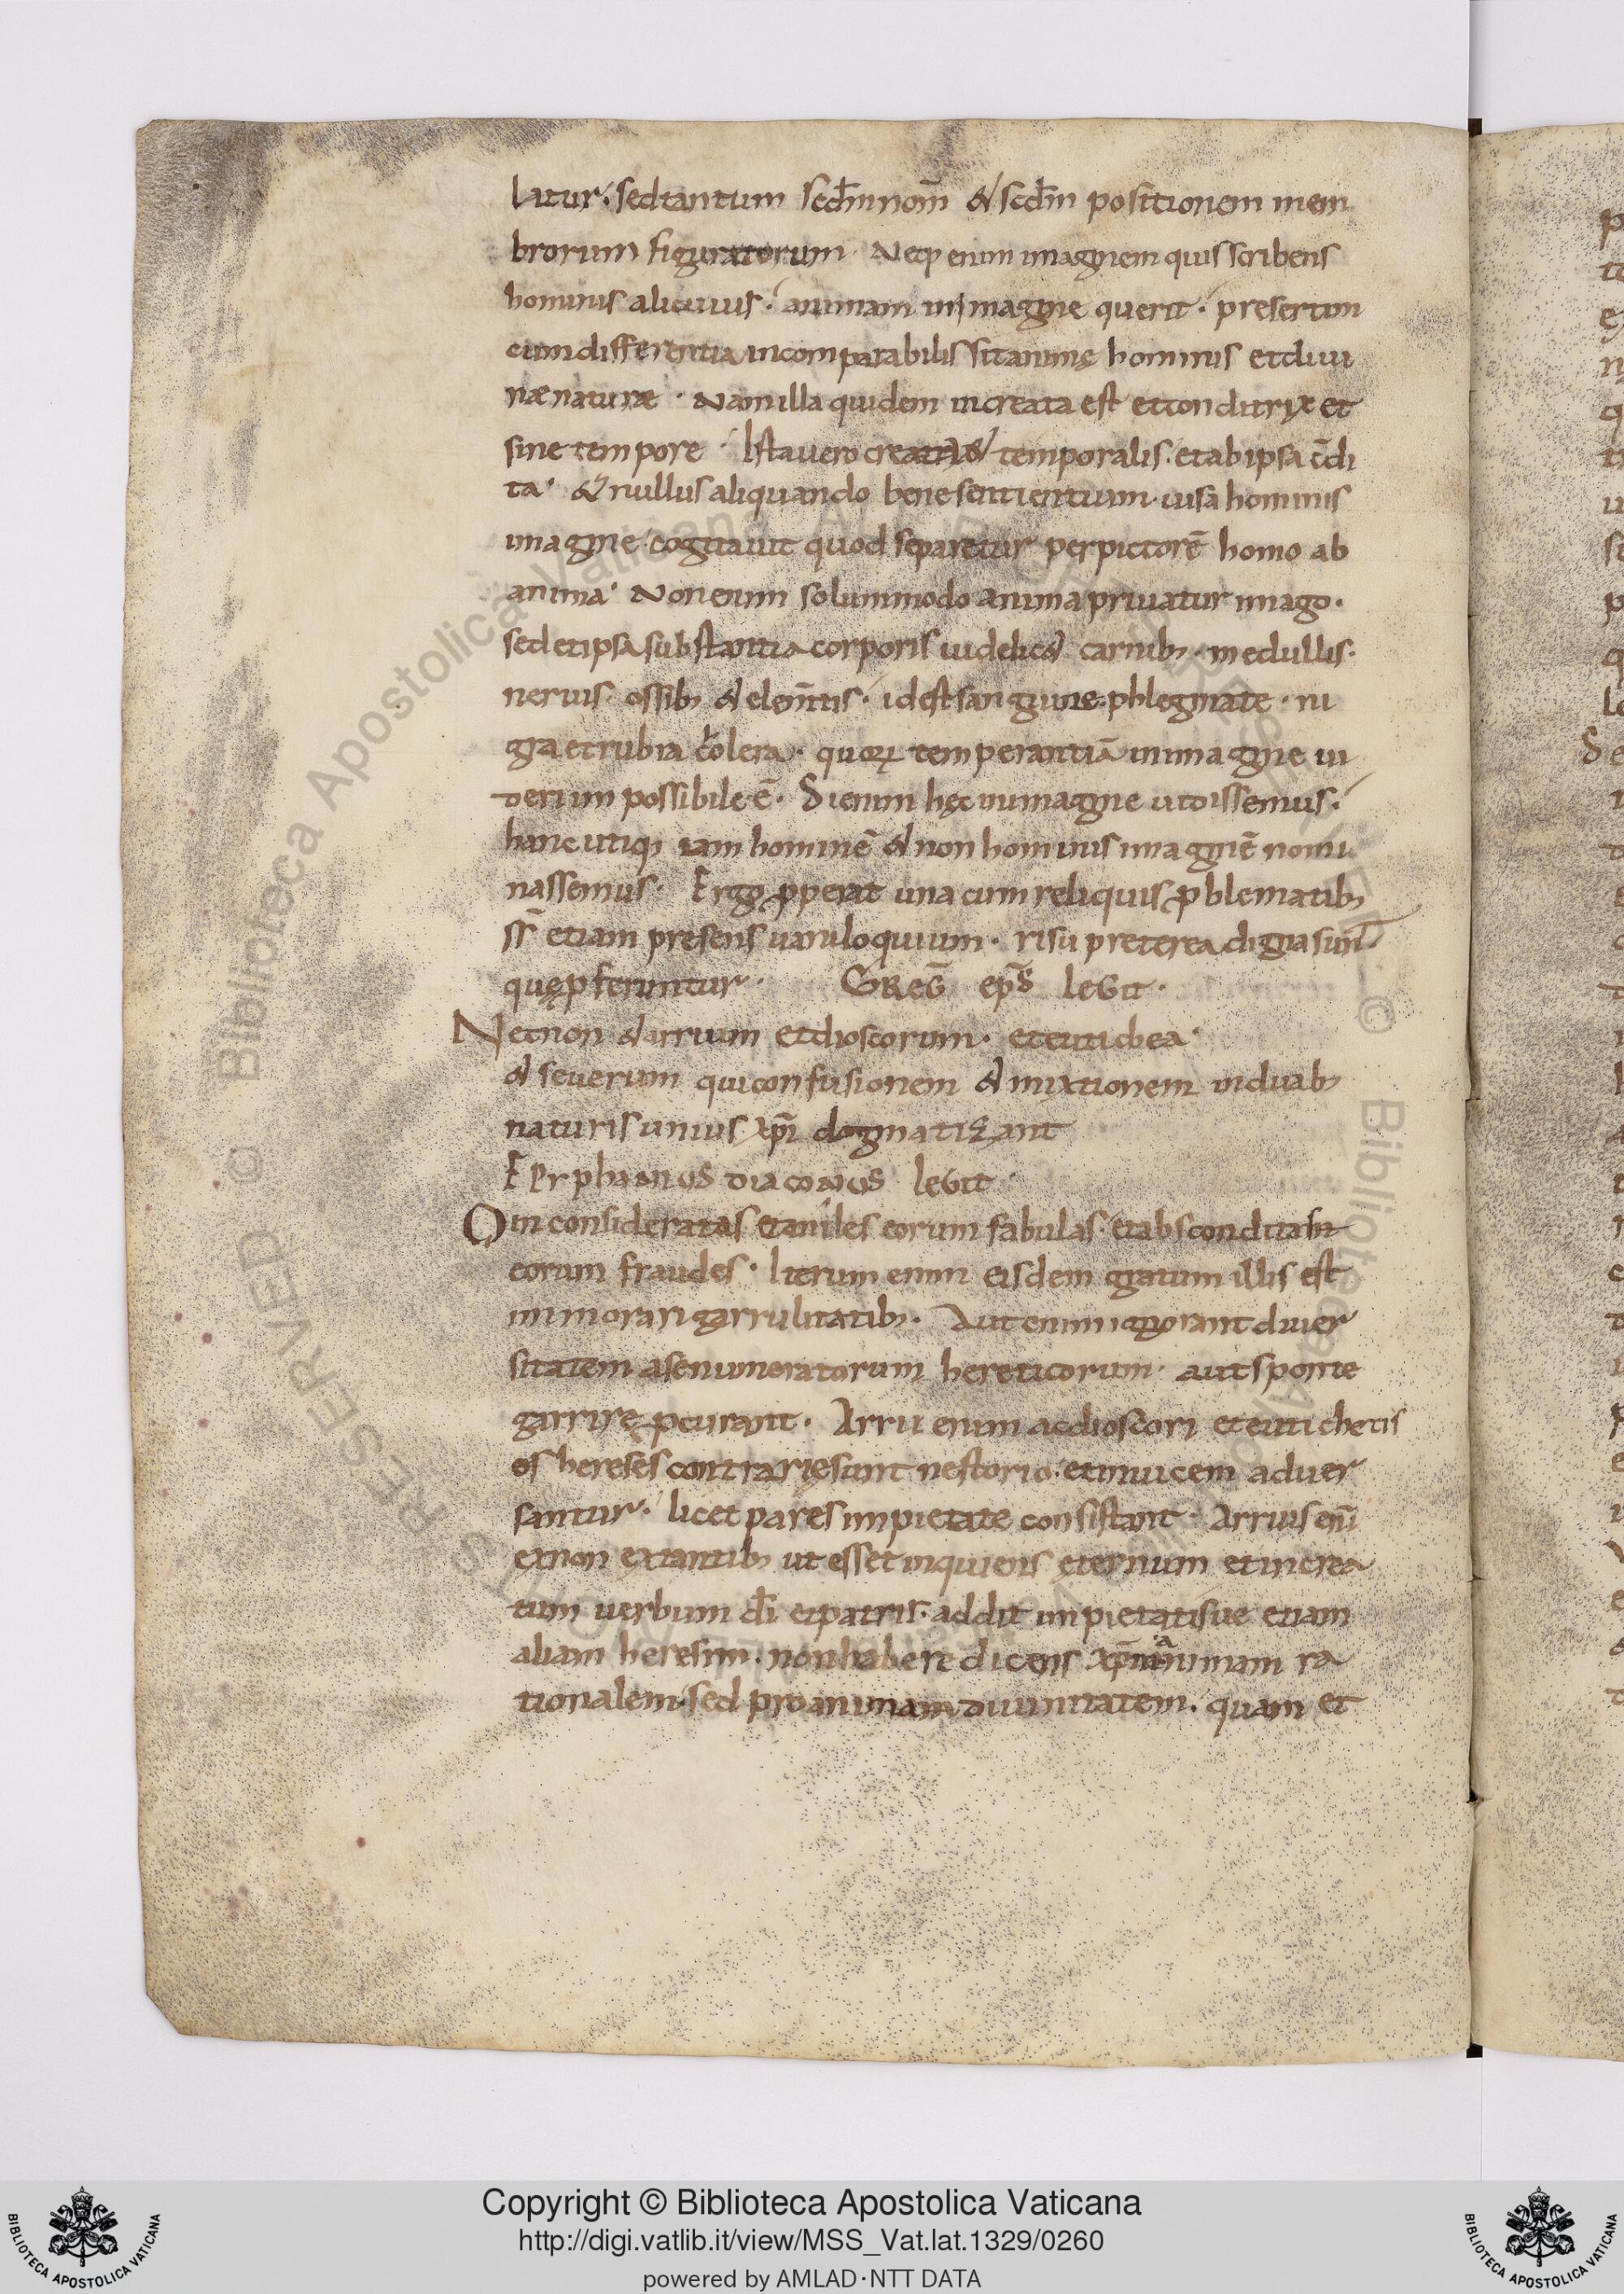 latur. sed tantum scdm nom̄ & scdm positionem mem
brorum figuratorum. Neq; enim imaginem quis scribens
hominis alicuius. animam in imagine querit. presertim
cum differentia incomparabilis sit animę hominis et diui
næ naturæ. Nam illa quidem increata est et conditrix et
sine tempore. Ista uero creata & temporalis. et ab ipsa c̄di
ta. & nullus aliquando bene sentientium. uisa hominis
imagine. cogitauit quod separetur per pictorē homo ab
anima. Non enim solummodo anima priuatur imago.
sed et ipsa substantia corporis uidelic& carnib; medullis.
neruis. ossib; & elem̄tis. id est sanguine. phlegmate. ni
gra et rubra colera. quoꝝ temperantiā in imagine ui
deri impossibile ē. Si enim hęc in imagine uidissemus.
hanc utiq; iam hominē & non hominis imaginē nomi
nassemus. Ergo ꝓperat una cum reliquis ꝓblematib;
sr̄ etiam presens uaniloquium. risu preterea digna sunt
quę ꝓferuntur. GREḠ ep̄s LEGIT.
Necnon & arrium et dioscorum. et eutichea.
& seuerum qui confusionem & mixtionem in duab;
naturis unius xp̄i dogmatizant
EPIphanius diaconus legit
O inconsideratas et aniles eorum fabulas. et absconditas
eorum fraudes. Iterum enim eisdem gratum illis est
inmorari garrulitatib;. Aut enim ignorant diuer
sitatem a se numeratorum hereticorum. aut sponte
garrire ꝓcurant. Arrii enim ac dioscori et eutichetis
os hereses contrarię sunt nestorio. et inuicem aduer
santur. licet pares impietate consistant. Arrius enī
ex non extantib; ut esset inquiens ęternum et increa
tum uerbum d̄i et patris. addit impietatis ue etiam
aliam heresim. non habere dicens xp̄m animam ra
tionalem. sed pro animam diuinitatem. quam et
Copyright © Biblioteca Apostolica Vaticana
http://digi.vatlib.it/view/MSS_Vat.lat.1329/0260
powered by AMLAD·NTT DATA
BIBLIOTECA APOSTOLICA VATICANA
BIBLIOTECA APOSTOLICA VATICANA